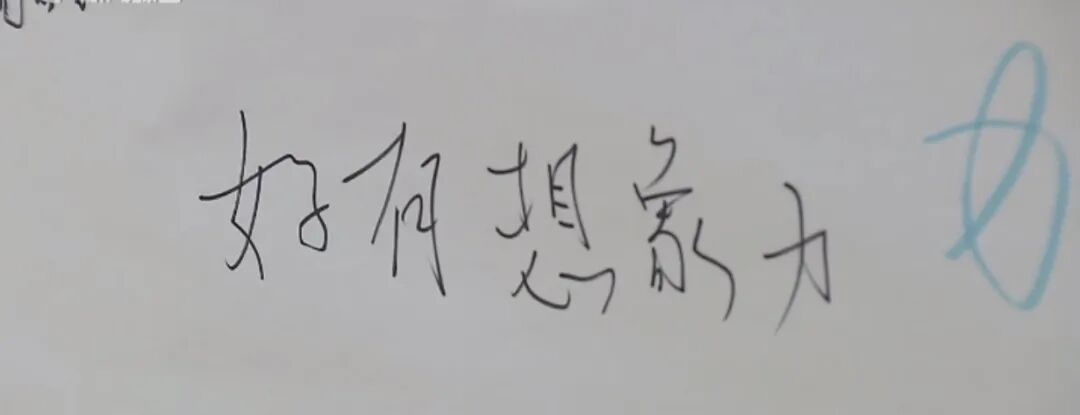 好有想象力